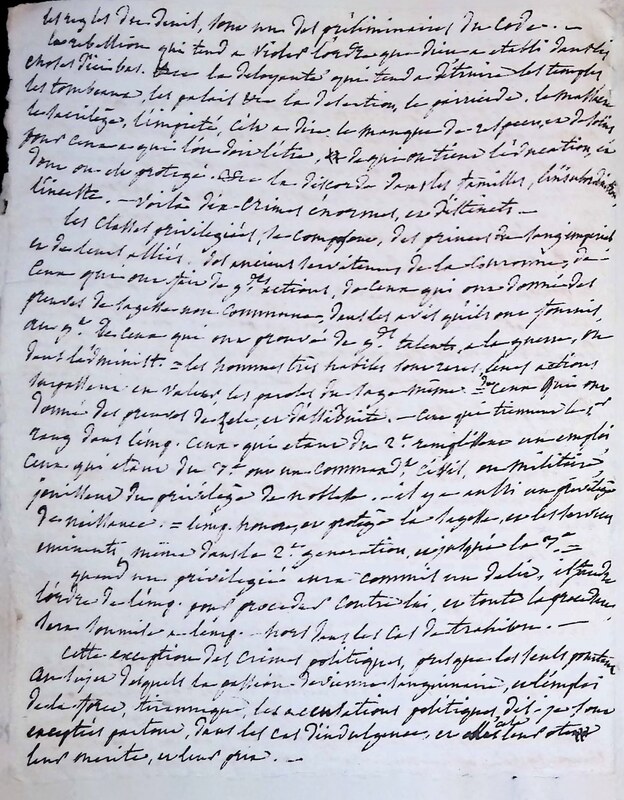 les regles du deuil, sont un des préliminaires du Code. —
la rebellion qui tend a violer l'ordre que dieu a etabli dans les
choses d'ici bas. la deloyauté qui tend a détruire les temples
les tombeaux, les palais la desertion, le parricide. le massacre
le sacrilège, l'impiété, c'est a dire le manque de respect, et de soins
pour ceux a qui l'on doit l'être, de qui on tient l'éducation, et
dont on est protégé. la discorde dans les familles, l'insubordination,
l'inceste. — Voila dix crimes énormes, et distincts —
les classes privilegiées, se composent, des princes du sang imperial
et de leurs alliés. des anciens serviteurs de la Couronne, de
Ceux qui ont fait de gdes actions, de ceux qui ont donné des
preuves de sagesse non commune, dans les avis qu'ils ont fournis,
au gt. de ceux qui ont prouvé de gds talents, a la guerre, ou
dans l'administ. = les hommes très habiles sont rares, leurs actions
surpassent en valeur, les paroles du sage même. = ceux qui ont
donné des preuves de zele, et d'assiduité. — Ceux qui tiennent le 1r
rang dans l'emp. ceux qui etant du 2d remplissent un emploi
Ceux qui etant du 3e ont un command. civil, ou militaire,
jouissent du privilège de noblesse. — il y a aussi un privilège
de naissance. = l'emp. honore, et protège la sagesse, et les services
eminents, même dans la 2e generation, et jusques la 3e. =
quand un privilegié aura commis un delit, il faudra
l'ordre de l'emp. pour proceder contre lui, et toute la procedure,
sera soumise a l'emp. — hors dans les cas de trahison. —
Cette exception des crimes politiques, presque les seuls pourtant
au sujet desquels la passion devienne sanguinaire, et l'emploi
de la force, tirannique, les accusations politiques, dis-je sont
exceptées partout, dans les cas d'indulgence, et cela leur ote
leur merite, et leur prix. —